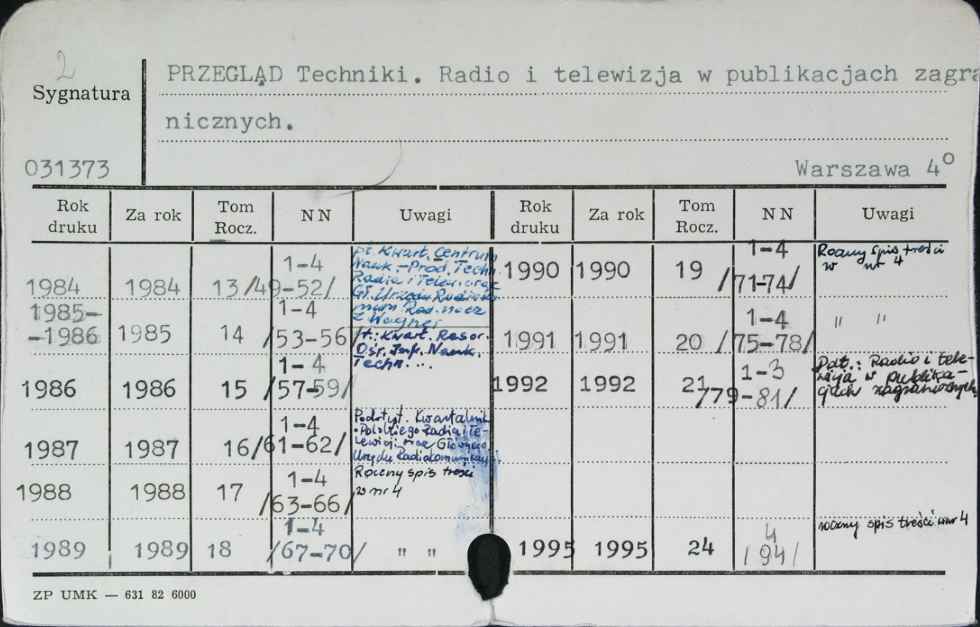 2
Sygnatura
PRZEGLĄD Techniki. Radio i telewizja w publikacjach zagra
nicznych.
031373
Warszawa 4°
Rok druku Za rok Tom Rocz. NN Uwagi Rok druku Za rok Tom Rocz. NN Uwagi
1984 1984 13 1-4 /49-52/
Kwart. Centrum
Nauk.-Prod. Techn
Radia i Telew. oraz
Gł. Urzędu
1985-
-1986 1985 14 1-4 /53-56/
Kwart. Resor.
Ośr. Inf. Nauk.
Techn...
1986 1986 15 1-4 /57-59/
1987 1987 16 1-4 /61-62/
Podtyt. Kwartalnik
Polskiego Radia i Te-
lewizji oraz Głównego
Urzędu
1988 1988 17 1-4 /63-66/
Roczny spis treści
w nr 4
1989 1989 18 1-4 /67-70/ " "
1990 1990 19 1-4 /71-74/
Roczny spis treści
w nr 4
1991 1991 20 1-4 /75-78/ " "
1992 1992 21 1-3 /79-81/
Radio i tele-
wizja w publika-
cjach zagranicznych
1995 1995 24 4 /94/ roczny spis treści w nr 4
ZP UMK — 631 82 6000